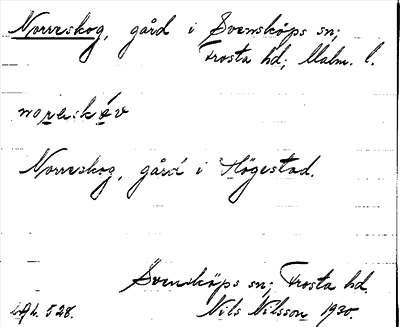 Norreskog, gård i Svensköps sn;
Frosta hd; Malm. l.
noreskóv
Norreskog, gård i Högestad.
Svensköps sn; Frosta hd.
528. Nils Nilsson 1930.